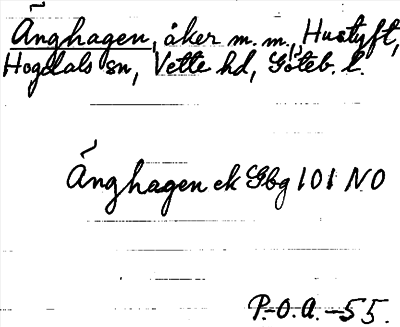 Änghagen, åker m.m., Hustyft,
Hogdals sn, Vette hd, Göteb. l.
Änghagen ek Gbg 101 NO
P.-O.A. -55.